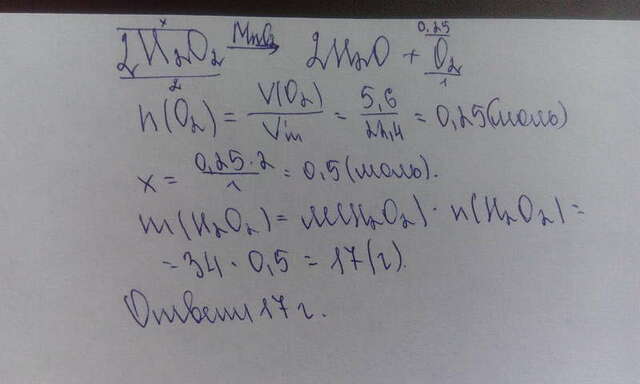 x 0,25
2H₂O₂ MnO₂→ 2H₂O + O₂
2 1
n(O₂) = V(O₂)/Vm = 5,6/22,4 = 0,25(моль)
x = 0,25·2/1 = 0,5(моль).
m(H₂O₂) = M(H₂O₂) · n(H₂O₂) =
= 34 · 0,5 = 17(г).
Ответ: 17 г.